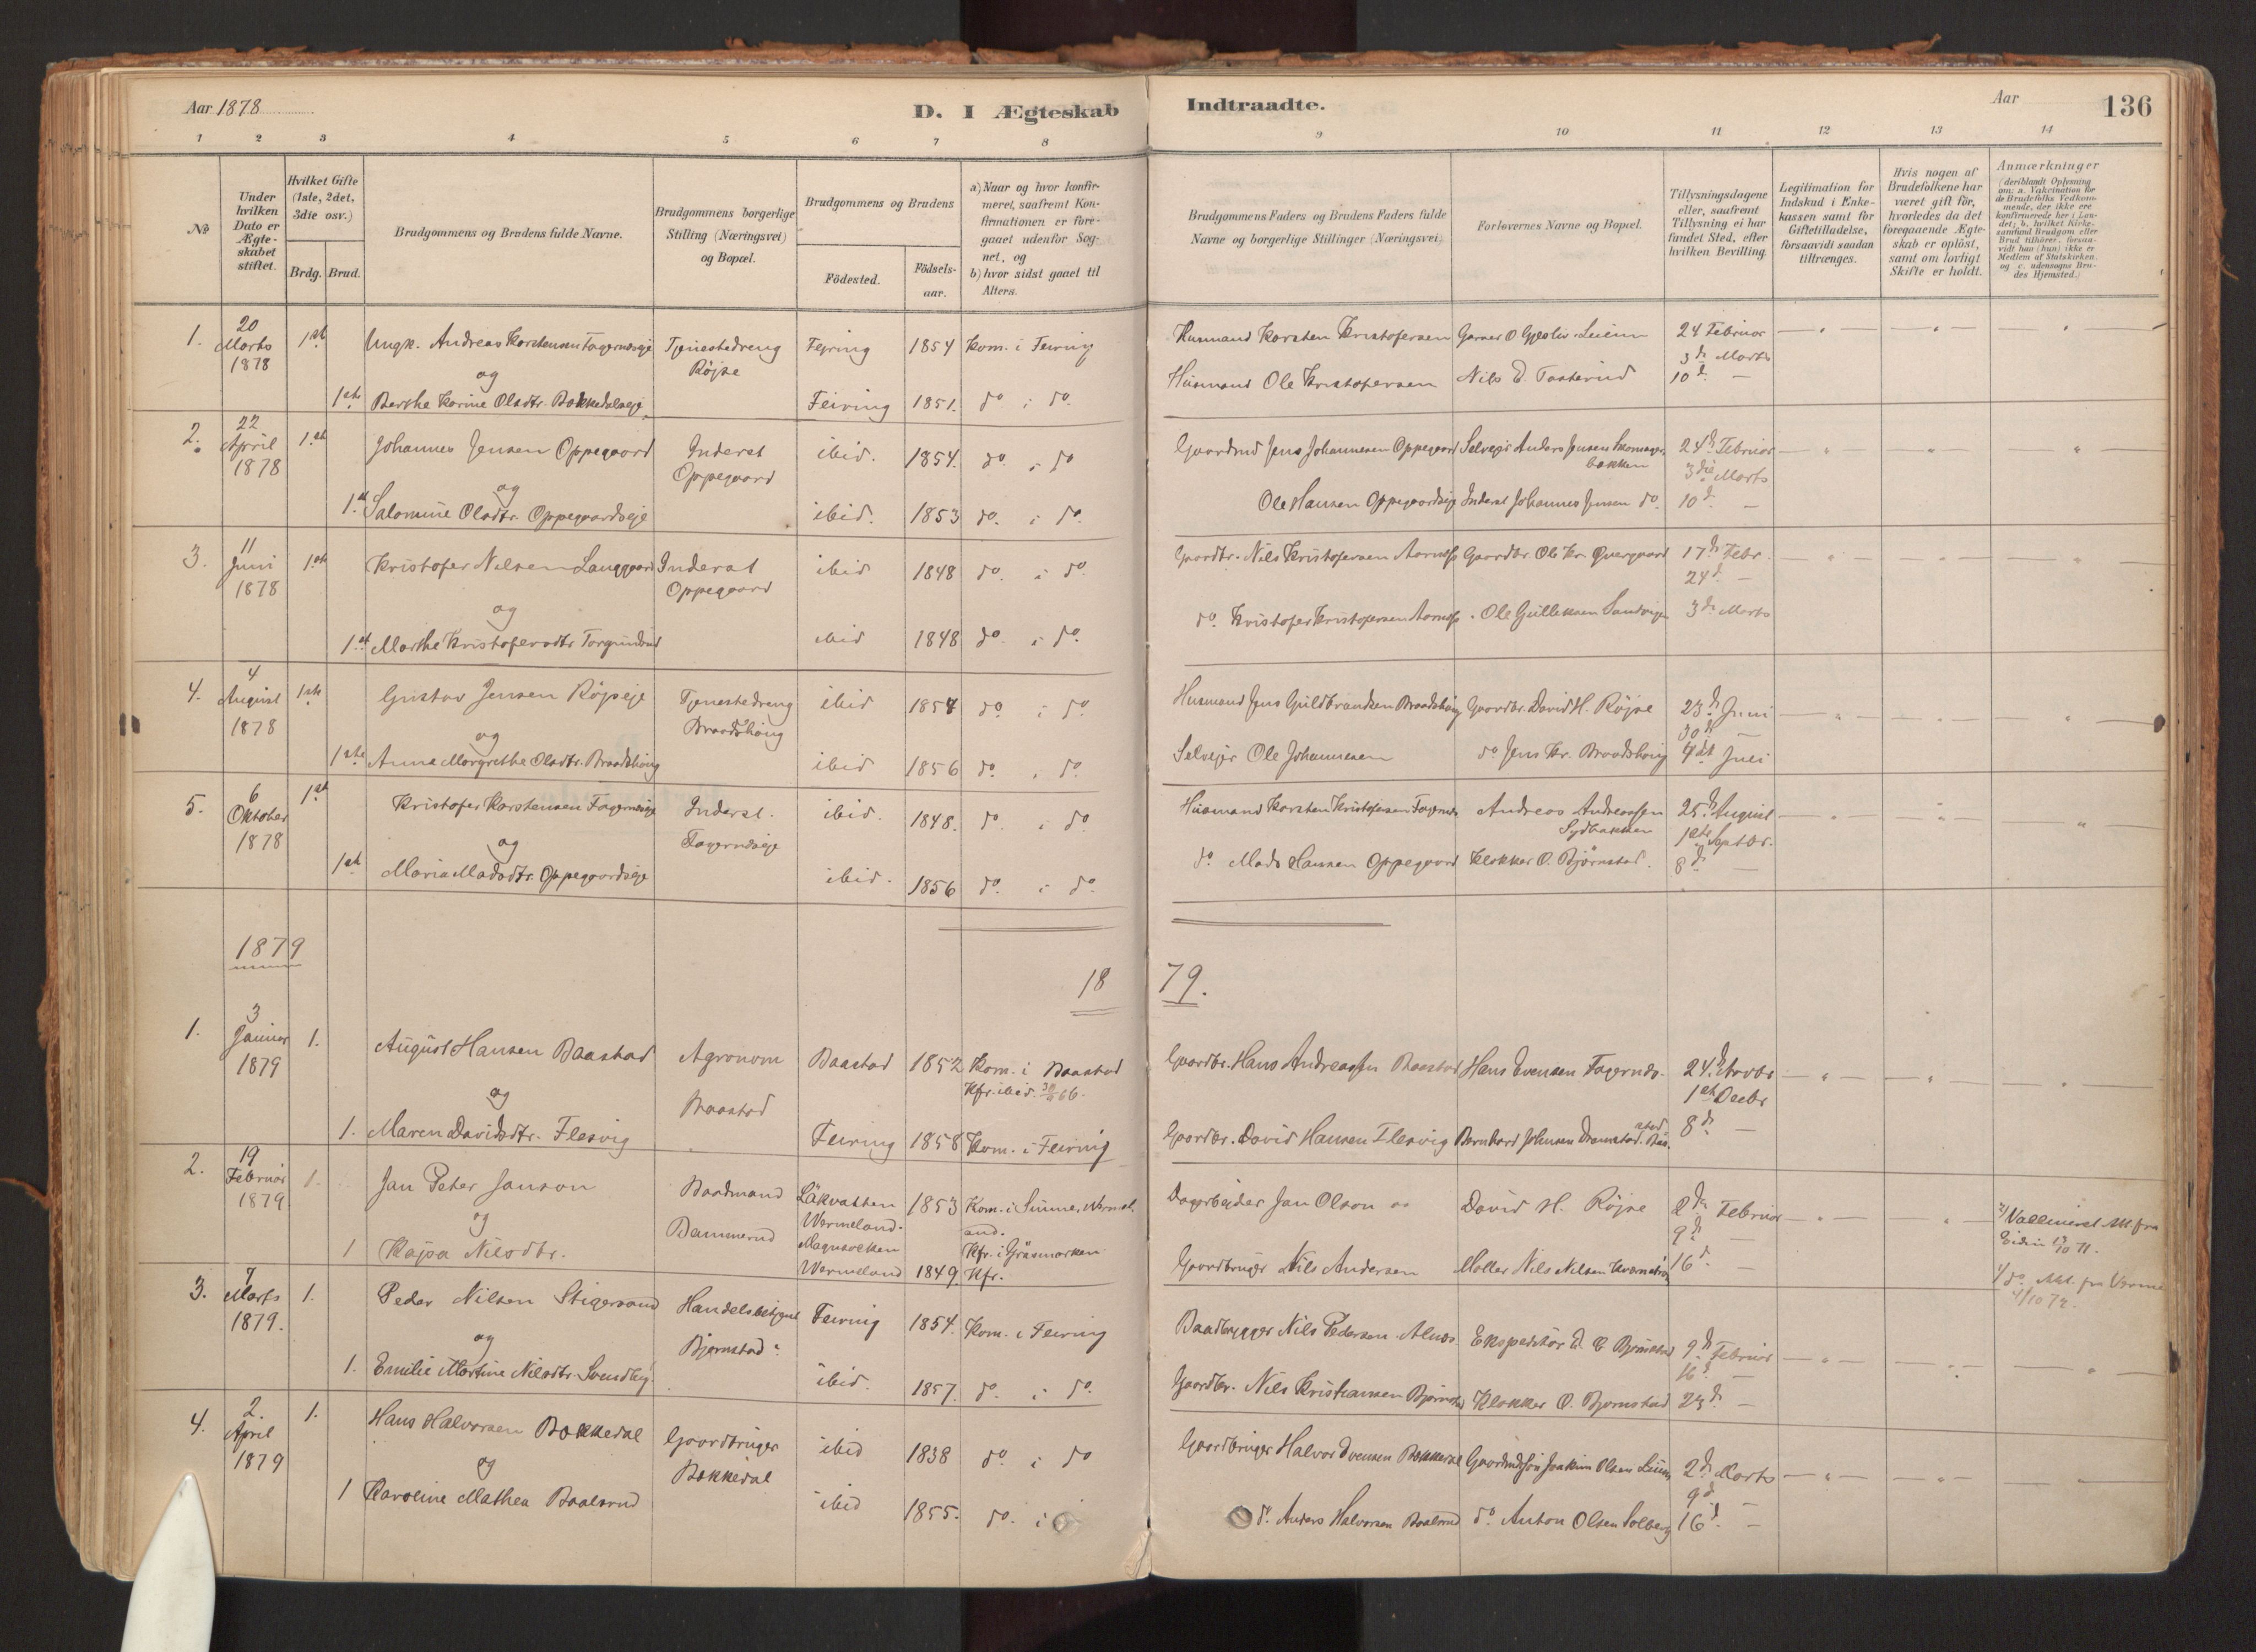 Aar 1878
D. I Ægteskab Indtraadte.
Aar
136
1 2 3 4 5 6 7 8 9 10 11 12 13 14
No
Under hvilken Dato er Ægteskabet stiftet.
Hvilket Gifte (1ste, 2det, 3die osv.)
Brdg. Brud.
Brudgommens og Brudens fulde Navne.
Brudgommens borgerlige Stilling (Næringsvei) og Bopæl.
Brudgommens og Brudens
Födested.
Födselsaar.
a) Naar og hvor konfirmeret, saafremt Konfirmationen er foregaaet udenfor Sognet, og
b) hvor sidst gaaet til Alters.
Brudgommens Faders og Brudens Faders fulde Navne og borgerlige Stillinger (Næringsvei)
Forlovernes Navne og Bopæl.
Tillysningsdagene eller, saafremt Tillysning ei har fundet Sted, efter hvilken Bevilling.
Legitimation for Indskud i Enkekassen samt for Giftetilladelse, forsaavidt saadan tiltrænges.
Hvis nogen af Brudefolkene har været gift för, hvorledes da det foregaaende Ægteskab er oplöst, samt om lovligt Skifte er holdt.
Anmærkninger
(deriblandt Oplysning om: a. Vakcination for de Brudefolks Vedkommende, der ikke ere konfirmerede her i Landet; b. hvilket Kirkesamfund Brudgom eller Brud tilhører, forsaavidt han (hun) ikke er Medlem af Statskirken, og c. udensogns Brudes Hjemsted.)
1. 20 Marts 1878 1ste Ungk. Andreas Karstensen Fagernæseje Tjenestedreng Röjse Fejring 1854 Kom. i Feiring Husmand Karsten Kristofersen 24 Februar
og 3d Marts
1ste Berthe Karine Olsdtr. Bakkedalseje Feiring 1851. do i do. Husmand Ole Kristofersen Nils D. Tosterud 10d —
2. 22 April 1878 1ste Johannes Jensen Oppegaard Inderst Oppegaard ibid. 1854. do. i do Gaardmd Jens Johannesen Oppegaard Selvejr Anders Jensen 24d Februar
og 3die Marts
1st Salomine Olsdtr. Oppegaardseje ibid. 1853 do. i do. Ole Hansen Oppegaardseje Inderst Johannes Jensen do. 10d —
3. 11 Juni 1878 1ste Kristofer Nilsen Langgaard Inderst Oppegaard ibid 1848 do. i do. Gaardbr. Nils Kristofersen Aarnæs Gaardbr. Ole Kr. 17d Febr.
og 24d —
1st Marthe Kristofersdtr. ibid 1848 do. i do. do. Kristofer Kristofersen Aarnæs Ole Gulliksen Sandvigen 3d Marts
4. 4 August 1878 1ste Gustav Jensen Röjseje Tjenestedreng Braadshoug ibid 1854 do i do. Husmand Jens Guldbrandsen Braadshoug Gaardbr. David H. Röjse 23d Juni
og 30d —
1ste Anne Margrethe Olsdtr. Braadshoug ibid 1856 do. i do. Selvejer Ole Johannesen do Jens Kr. Braadshoug 7de Juli
5. 6 Oktober 1878 1ste Kristofer Karstensen Fagernæseje Inderst. Fagernæseje ibid. 1848. do. i do. Husmand Karsten Kristofersen Fagernæs Andreas Andreassen Sydbakken 25d August
og 1ste Septbr.
1ste Maria Madsdtr. Oppegaardseje ibid. 1856 do. i do. do. Mads Hansen Oppegaard Klokker O. Björnstad. 8d —
1879
18 79.
1. 3 Januar 1879 1. August Hansen Baastad Agronom Baastad Baastad 1852 Kom. i Baastad Kfr. ibid. Gaardbr. Hans Andreassen Baastad Hans Evensen Fagernæs. 24d Novbr
og 1ste Decbr
1. Maren Davidsdtr. Flesvig Feiring 1858 Kom. i Feiring Gaardbr. David Hansen Flesvig Bernhard Johnsen 8d —
2. 19 Februar 1879 1. Jan Peter Janson Baadmand Dammerud Läkvatten Wermeland. 1853 Kom. i Dagarbejder Jan Olson David H. Röjse 2d Februar
og 9d —
1 Kajsa Nilsdtr. Wermeland 1849 Kfr. i Gräsmarken Kfr. Gaardbruger Nils Andersen Möller Nils Nilsen 16d —
3. 7 Marts 1879. 1. Peder Nilsen Stigersand Handelsbetjent Bjørnstad. Feiring 1854. Kom. i Feiring Baadbygger Nils Pedersen Ekspeditör 9d Februar
og 16d —
1. Emilie Martine Nilsdtr. Sundby ibid. 1857. do. i do. Gaardbr. Nils Kristiansen Björnstad Klokker O. Bjørnstad 23d —
4. 2. April 1879 1. Hans Halvorsen Bakkedal Gaardbruger Bakkedal ibid 1838 do. i do Gaardbruger Halvor Evensen Bakkedal Joakim Olsen 2d Marts
og 9d —
1 Karoline Mathea Baalsrud ibid 1855. do. i do. Anders Halvorsen Baalsrud do. Anton Olsen Solberg 16d —